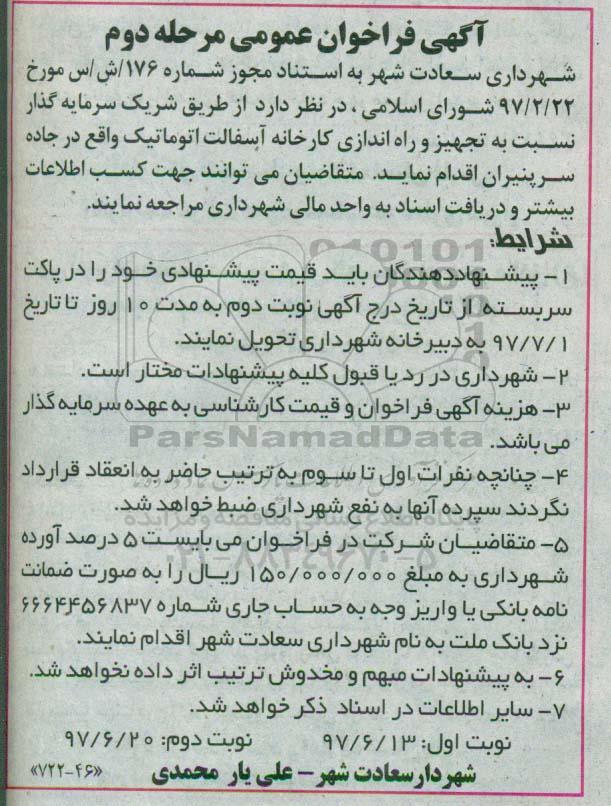 آگهی فراخوان عمومی مرحله دوم
شهرداری سعادت شهر به استناد مجوز شماره ۱۷۶/ش/س مورخ
۹۷/۲/۲۲ شورای اسلامی، در نظر دارد از طریق شریک سرمایه گذار
نسبت به تجهیز و راه اندازی کارخانه آسفالت اتوماتیک واقع در جاده
سرپنیران اقدام نماید. متقاضیان می توانند جهت کسب اطلاعات
بیشتر و دریافت اسناد به واحد مالی شهرداری مراجعه نمایند.
شرایط:
۱- پیشنهاددهندگان باید قیمت پیشنهادی خود را در پاکت
سربسته از تاریخ درج آگهی نوبت دوم به مدت ۱۰ روز تا تاریخ
۹۷/۷/۱ به دبیرخانه شهرداری تحویل نمایند.
۲- شهرداری در رد یا قبول کلیه پیشنهادات مختار است.
۳- هزینه آگهی فراخوان و قیمت کارشناسی به عهده سرمایه گذار
می باشد.
ParsNamadData
۴- چنانچه نفرات اول تا سوم به ترتیب حاضر به انعقاد قرارداد
نگردند سپرده آنها به نفع شهرداری ضبط خواهد شد.
پایگاه اطلاع رسانی مناقصه و مزایده
۵- متقاضیان شرکت در فراخوان می بایست ۵ درصد آورده
۰۲۱-۸۸۳۴۹۶۷۰-۵
شهرداری به مبلغ ۱۵۰/۰۰۰/۰۰۰ ریال را به صورت ضمانت
نامه بانکی یا واریز وجه به حساب جاری شماره ۶۶۶۴۴۵۶۸۳۷
نزد بانک ملت به نام شهرداری سعادت شهر اقدام نمایند.
۶- به پیشنهادات مبهم و مخدوش ترتیب اثر داده نخواهد شد.
۷- سایر اطلاعات در اسناد ذکر خواهد شد.
نوبت اول: ۹۷/۶/۱۳ نوبت دوم: ۹۷/۶/۲۰
شهردار سعادت شهر - علی یار محمدی «۷۲۲-۴۶»